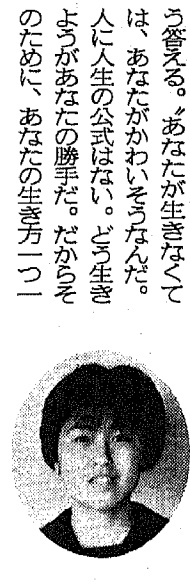 う答える。〝あなたが生きなくて
は、あなたがかわいそうなんだ。
人に人生の公式はない。どう生き
ようがあなたの勝手だ。だからそ
のために、あなたの生き方一つ一